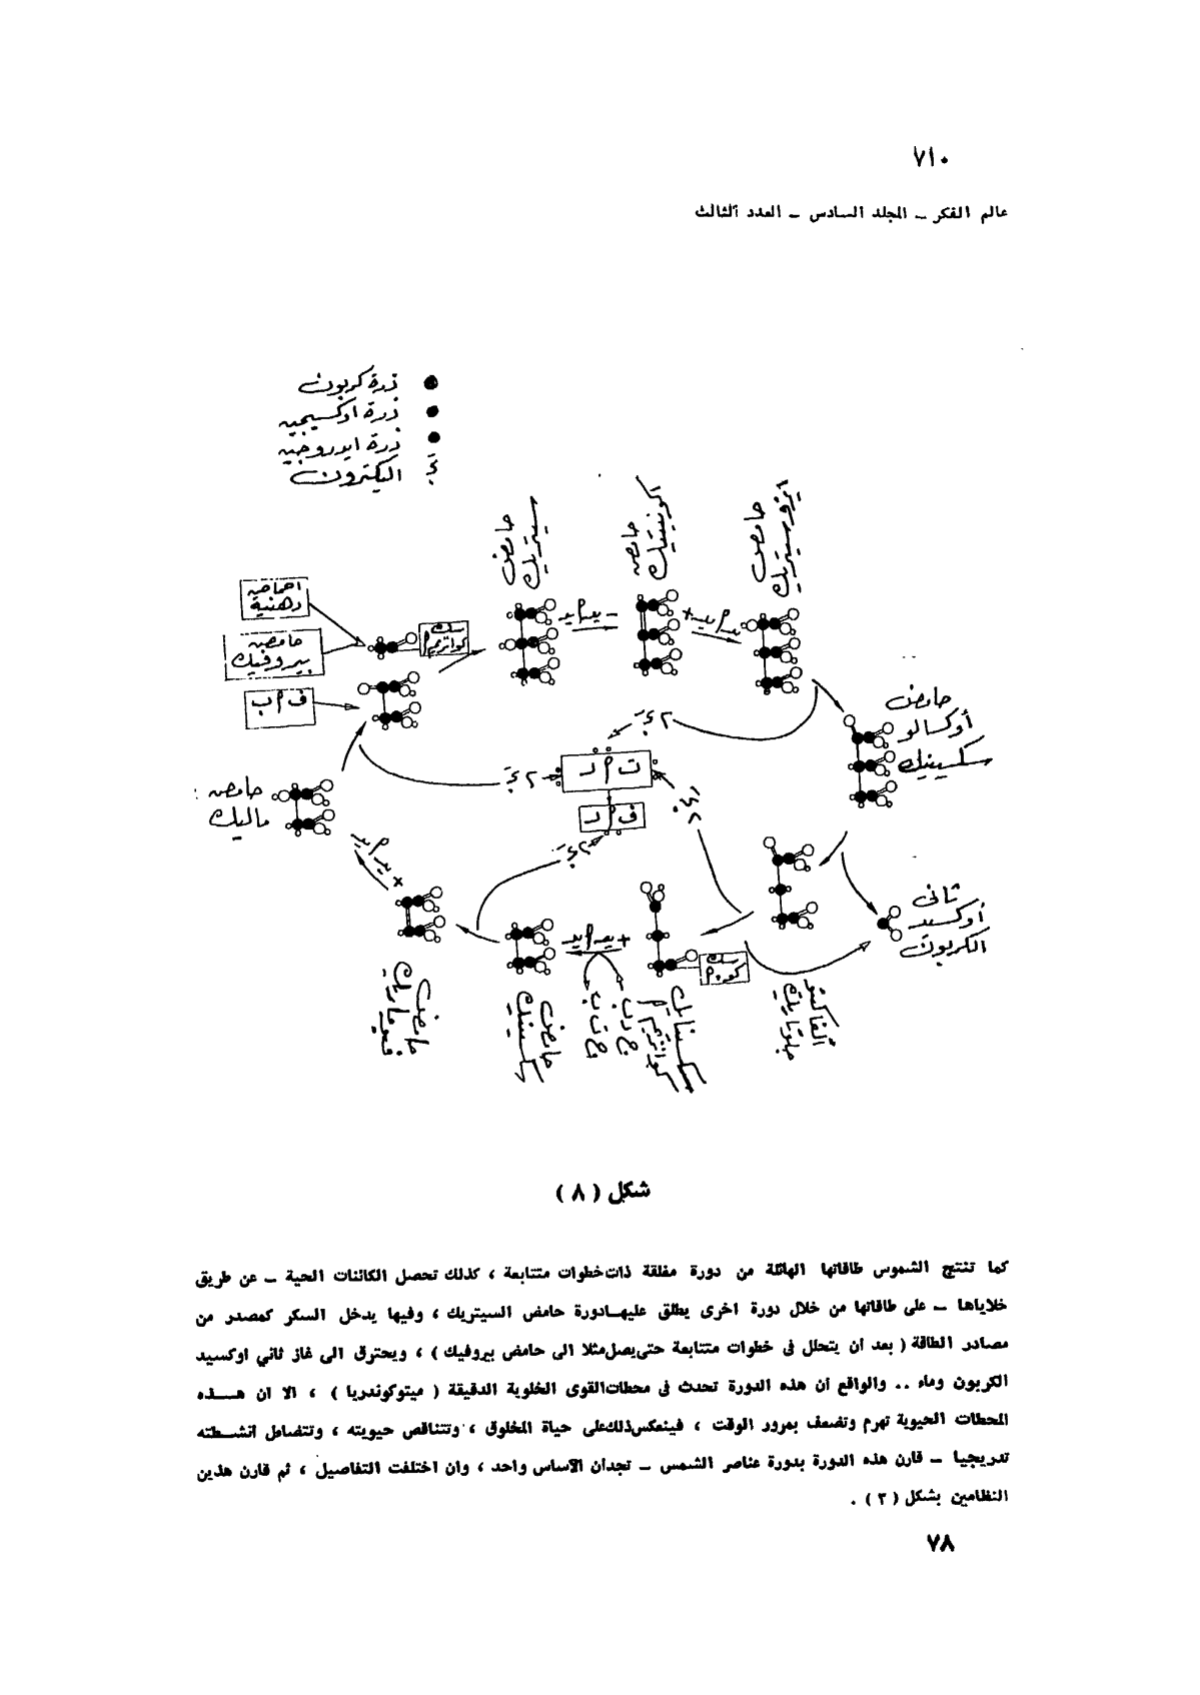 ٧١٠
عالم الفكر - المجلد السادس - العدد الثالث
ذرة كربون
ذرة اوكسيجين
ذرة ايدروجين
اليكترون
حامض
سيتريك
حامض
اكونيتيك
حامض
ايزوسيتريك
احماض
دهنية
حامض
بيروفيك
حامض
أوكسالو
سكسينيك
حامض
ماليك
ثانى
أوكسيد
الكربون
حامض
فيوماريك
حامض
سكسينيك
ألفاكيتو
جلوتاريك
شكل ( ٨ )
كما تنتج الشموس طاقاتها الهائلة من دورة مغلقة ذات خطوات متتابعة ، كذلك تحصل الكائنات الحية - عن طريق
خلاياها - على طاقاتها من خلال دورة اخرى يطلق عليهـا دورة حامض السيتريك ، وفيها يدخل السكر كمصدر من
مصادر الطاقة ( بعد أن يتحلل فى خطوات متتابعة حتى يصل مثلا الى حامض بيروفيك ) ، ويحترق الى غاز ثاني اوكسيد
الكربون وماء .. والواقع أن هذه الدورة تحدث فى محطات القوى الخلوية الدقيقة ( ميتوكوندريا ) ، الا ان هـــذه
المحطات الحيوية تهرم وتضعف بمرور الوقت ، فينعكس ذلك على حياة المخلوق ، وتتناقص حيويته ، وتتضاءل انشـطته
تدريجيا - قارن هذه الدورة بدورة عناصر الشمس - تجد أن الأساس واحد ، وان اختلفت التفاصيل ، ثم قارن هذين
النظامين بشكل ( ٣ ) .
٧٨